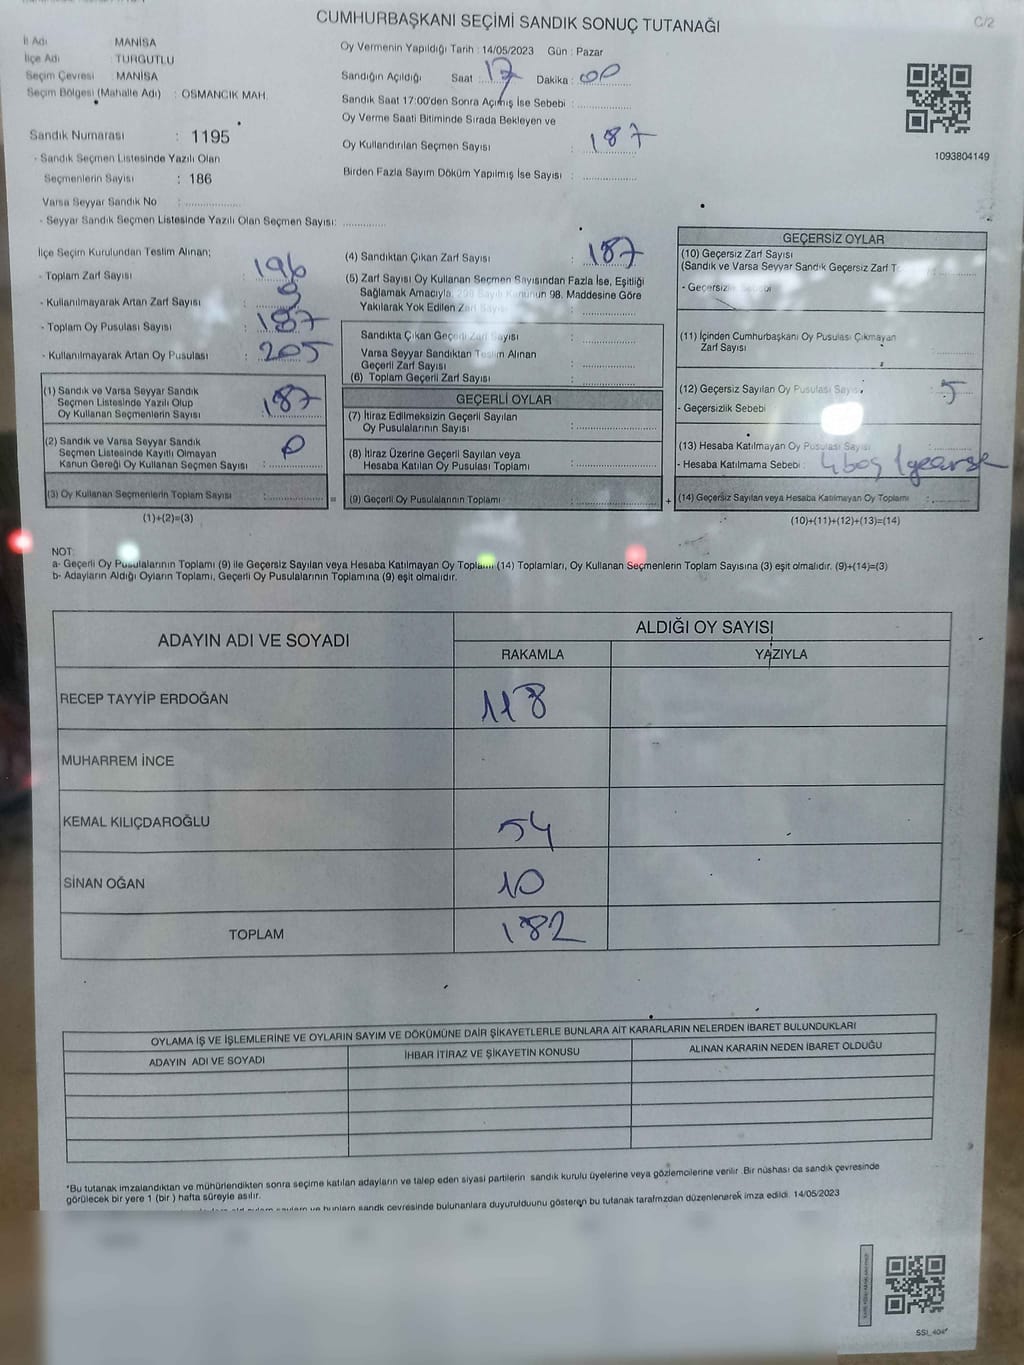 CUMHURBAŞKANI SEÇİMİ SANDIK SONUÇ TUTANAĞI
C/2
İl Adı MANİSA
İlçe Adı : TURGUTLU
Seçim Çevresi : MANİSA
Seçim Bölgesi (Mahalle Adı) : OSMANCIK MAH.
Sandık Numarası : 1195
- Sandık Seçmen Listesinde Yazılı Olan
Seçmenlerin Sayısı : 186
Varsa Seyyar Sandık No :
- Seyyar Sandık Seçmen Listesinde Yazılı Olan Seçmen Sayısı:
Oy Vermenin Yapıldığı Tarih : 14/05/2023 Gün : Pazar
Sandığın Açıldığı Saat : 17 Dakika : 00
Sandık Saat 17:00'den Sonra Açımış İse Sebebi :
Oy Verme Saati Bitiminde Sırada Bekleyen ve
Oy Kullandırılan Seçmen Sayısı : 187
Birden Fazla Sayım Döküm Yapılmış İse Sayısı :
1093804149
İlçe Seçim Kurulundan Teslim Alınan;
- Toplam Zarf Sayısı : 196
- Kullanılmayarak Artan Zarf Sayısı : 9
- Toplam Oy Pusulası Sayısı : 187
- Kullanılmayarak Artan Oy Pusulası : 205
(1) Sandık ve Varsa Seyyar Sandık
Seçmen Listesinde Yazılı Olup
Oy Kullanan Seçmenlerin Sayısı : 187
(2) Sandık ve Varsa Seyyar Sandık
Seçmen Listesinde Kayıtlı Olmayan
Kanun Gereği Oy Kullanan Seçmen Sayısı : 0
(3) Oy Kullanan Seçmenlerin Toplam Sayısı : =
(1)+(2)=(3)
(4) Sandıktan Çıkan Zarf Sayısı : 187
(5) Zarf Sayısı Oy Kullanan Seçmen Sayısından Fazla İse, Eşitliği
Sağlamak Amacıyla, 298 Sayılı Kanunun 98. Maddesine Göre
Yakılarak Yok Edilen Zarf Sayısı :
Sandıkta Çıkan Geçerli Zarf Sayısı :
Varsa Seyyar Sandıktan Teslim Alınan
Geçerli Zarf Sayısı :
(6) Toplam Geçerli Zarf Sayısı :
GEÇERLİ OYLAR
(7) İtiraz Edilmeksizin Geçerli Sayılan
Oy Pusulalarının Sayısı :
(8) İtiraz Üzerine Geçerli Sayılan veya
Hesaba Katılan Oy Pusulası Toplamı :
(9) Geçerli Oy Pusulalarının Toplamı : +
GEÇERSİZ OYLAR
(10) Geçersiz Zarf Sayısı
(Sandık ve Varsa Seyyar Sandık Geçersiz Zarf
- Geçersizlik Sebebi
(11) İçinden Cumhurbaşkanı Oy Pusulası Çıkmayan
Zarf Sayısı :
(12) Geçersiz Sayılan Oy Pusulası Sayısı : 5
- Geçersizlik Sebebi
(13) Hesaba Katılmayan Oy Pusulası Sayısı
- Hesaba Katılmama Sebebi : 4 boş 1
(14) Geçersiz Sayılan veya Hesaba Katılmayan Oy Toplamı :
(10)+(11)+(12)+(13)=(14)
NOT:
a- Geçerli Oy Pusulalarının Toplamı (9) ile Geçersiz Sayılan veya Hesaba Katılmayan Oy Toplamı (14) Toplamları, Oy Kullanan Seçmenlerin Toplam Sayısına (3) eşit olmalıdır. (9)+(14)=(3)
b- Adayların Aldığı Oyların Toplamı, Geçerli Oy Pusulalarının Toplamına (9) eşit olmalıdır.
ADAYIN ADI VE SOYADI
ALDIĞI OY SAYISI
RAKAMLA YAZIYLA
RECEP TAYYİP ERDOĞAN 118
MUHARREM İNCE
KEMAL KILIÇDAROĞLU 54
SİNAN OĞAN 10
TOPLAM 182
OYLAMA İŞ VE İŞLEMLERİNE VE OYLARIN SAYIM VE DÖKÜMÜNE DAİR ŞİKAYETLERLE BUNLARA AİT KARARLARIN NELERDEN İBARET BULUNDUKLARI
ADAYIN ADI VE SOYADI İHBAR İTİRAZ VE ŞİKAYETİN KONUSU ALINAN KARARIN NEDEN İBARET OLDUĞU
*Bu tutanak imzalandıktan ve mühürlendikten sonra seçime katılan adayların ve talep eden siyasi partilerin sandık kurulu üyelerine veya gözlemcilerine verilir. Bir nüshası da sandık çevresinde
görülecek bir yere 1 (bir) hafta süreyle asılır.
sandk çevresinde bulunanlara duyurulduunu gösteren bu tutanak tarafmzdan düzenlenerek imza edildi. 14/05/2023